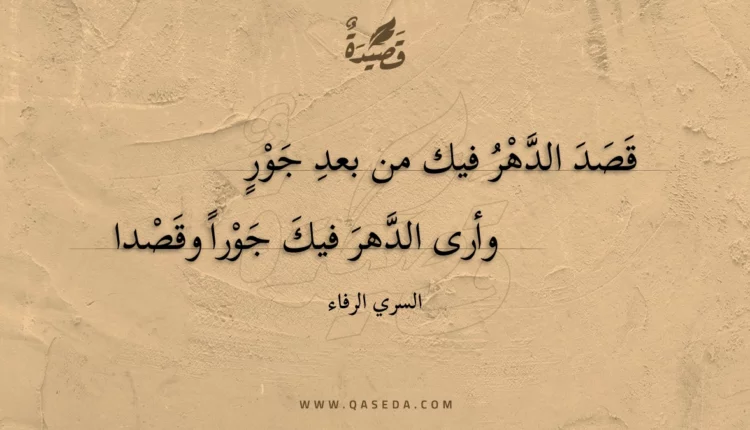 قَصِيْدَةٌ
قَصَدَ الدَّهْرُ فيك من بعدِ جَوْرٍ
وأرى الدَّهرَ فيكَ جَوْراً وقَصْدا
السري الرفاء
WWW.QASEDA.COM